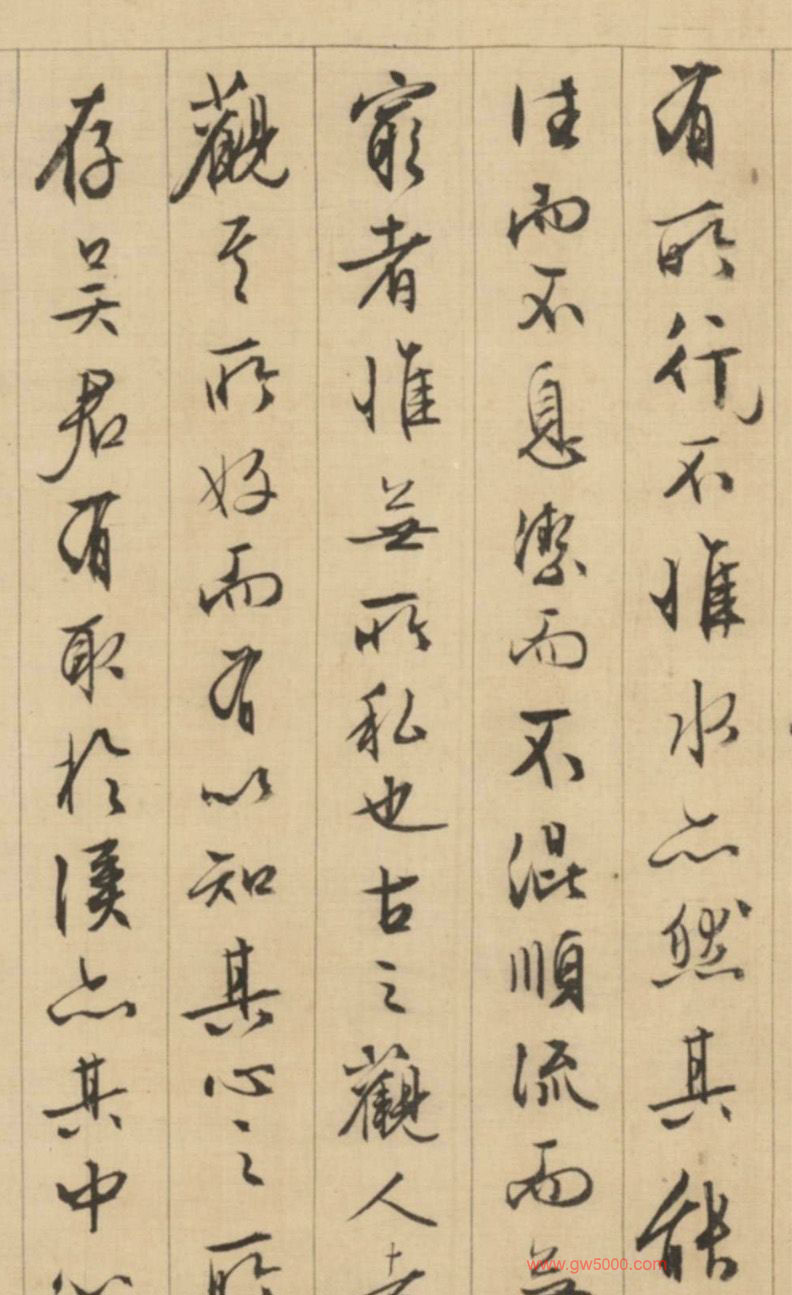 有所行不惟水亦然其能
往而不息潔而不混順流而無
窮者惟無所私也古之觀人者
觀其所好而有以知其心之所
存吴君有取於溪亦其中心
www.gw5000.com